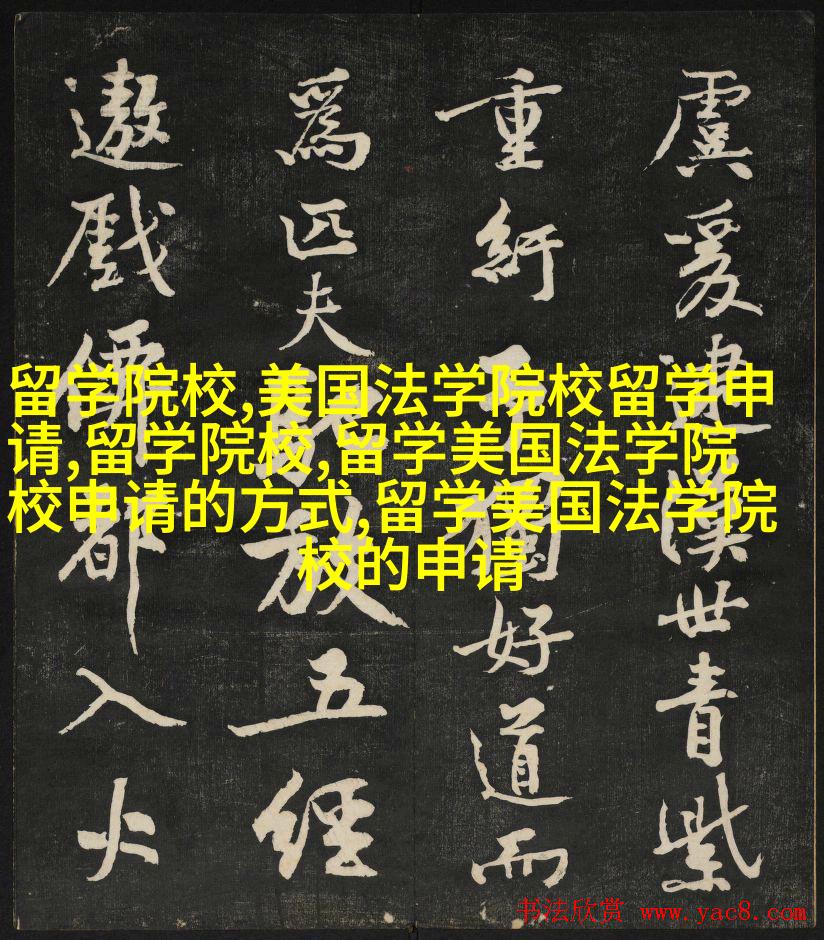 虞爰逮漢世青紫
重紆獨好道而
爲匹夫放五經
遨戲儒都入火
留学院校,美国法学院校留学申
请,留学院校,留学美国法学院
校申请的方式,留学美国法学院
校的申请
书法欣赏 www.yac8.com